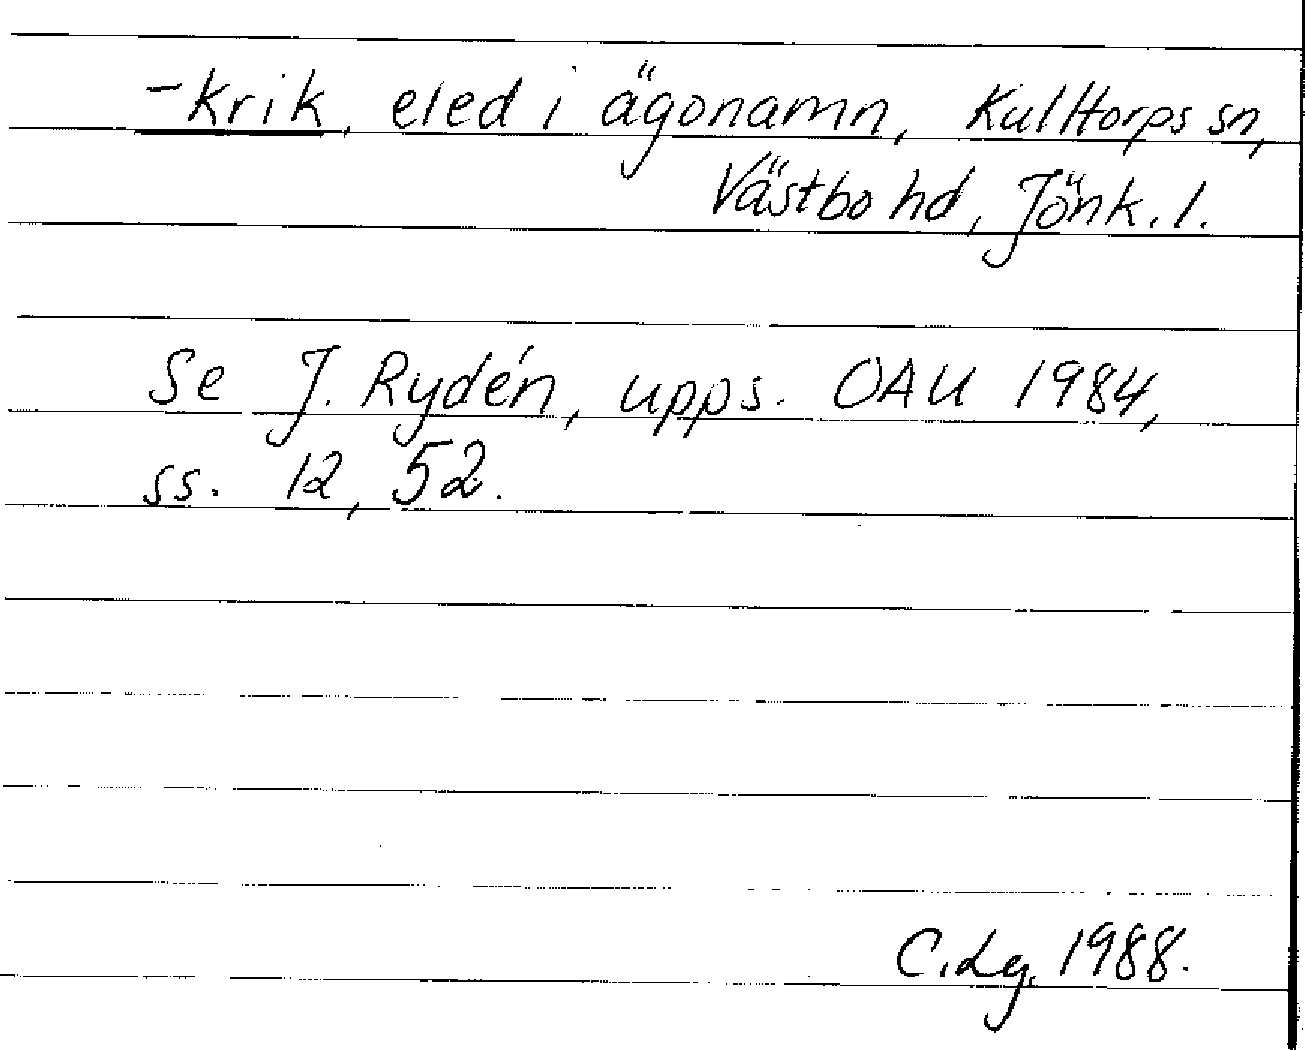 -krik, eled i ägonamn, Kulltorps sn,
Västbo hd, Jönk. l.
Se J. Rydén, upps. OAU 1984,
ss. 12, 52.
C.Lg. 1988.